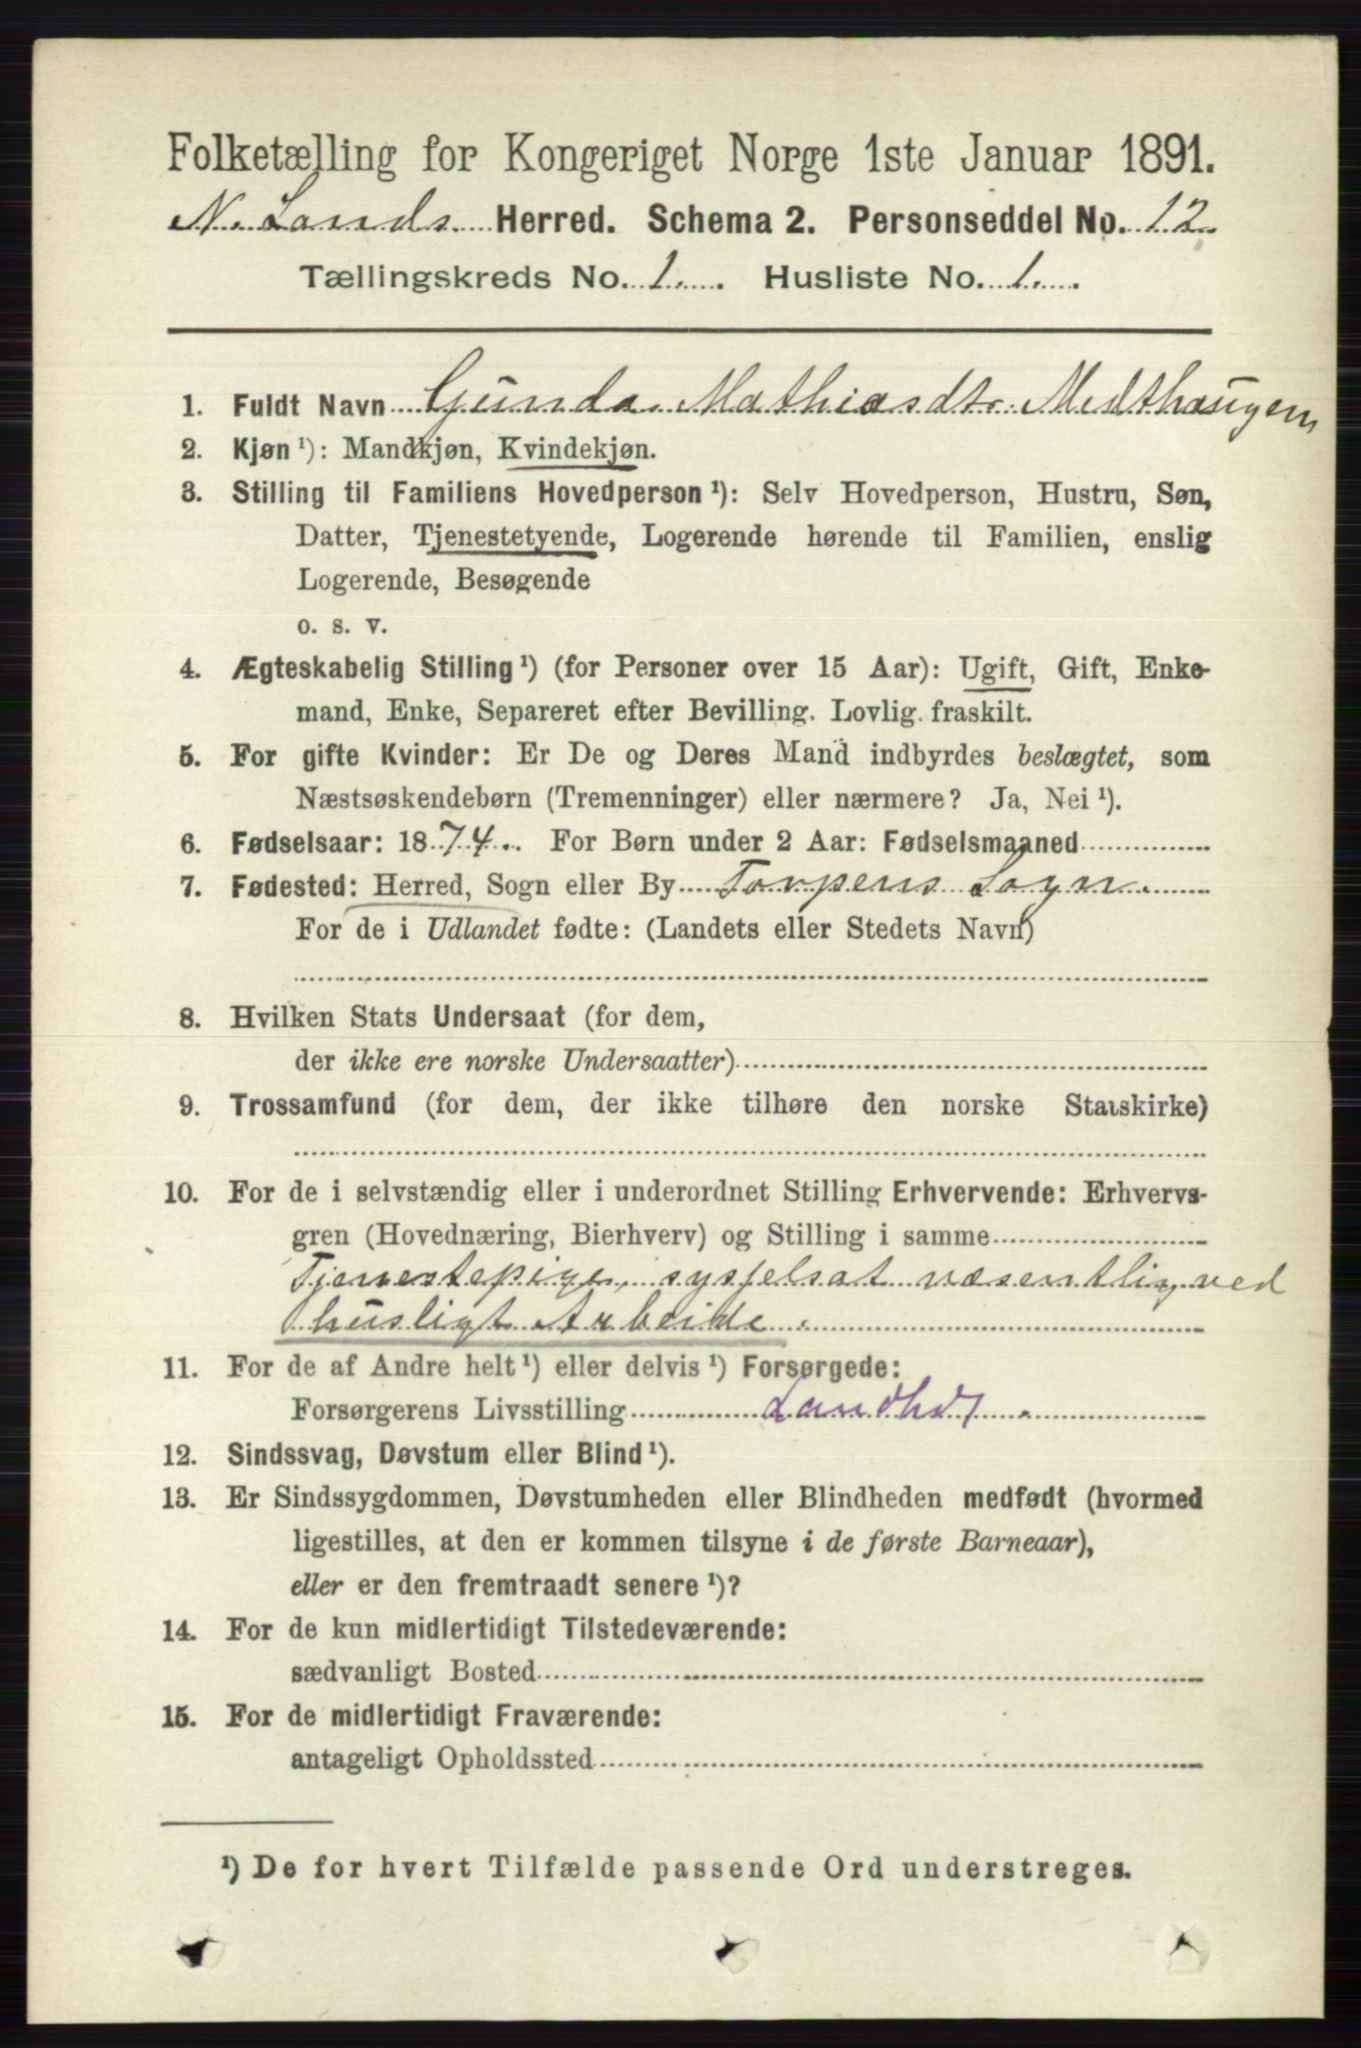 Folketælling for Kongeriget Norge 1ste Januar 1891.
N. Lands Herred. Schema 2. Personseddel No. 12.
Tællingskreds No. 1. Husliste No. 1.
1. Fuldt Navn Gunda Mathiasdt. Midthaugen
2. Kjøn ¹): Mandkjøn, Kvindekjøn.
3. Stilling til Familiens Hovedperson ¹): Selv Hovedperson, Hustru, Søn,
Datter, Tjenestetyende, Logerende hørende til Familien, enslig
Logerende, Besøgende
o. s. v.
4. Ægteskabelig Stilling ¹) (for Personer over 15 Aar): Ugift, Gift, Enke-
mand, Enke, Separeret efter Bevilling. Lovlig. fraskilt.
5. For gifte Kvinder: Er De og Deres Mand indbyrdes beslægtet, som
Næstsøskendebørn (Tremenninger) eller nærmere? Ja, Nei ¹).
6. Fødselsaar: 1874. For Børn under 2 Aar: Fødselsmaaned
7. Fødested: Herred, Sogn eller By Torpens Sogn.
For de i Udlandet fødte: (Landets eller Stedets Navn)
8. Hvilken Stats Undersaat (for dem,
der ikke ere norske Undersaatter)
9. Trossamfund (for dem, der ikke tilhøre den norske Statskirke)
10. For de i selvstændig eller i underordnet Stilling Erhvervende: Erhvervs-
gren (Hovednæring, Bierhverv) og Stilling i samme
Tjenestepige, sysselsat væsentlig ved
husligt Arbeide.
11. For de af Andre helt ¹) eller delvis ¹) Forsørgede:
Forsørgerens Livsstilling
12. Sindssvag, Døvstum eller Blind ¹).
13. Er Sindssygdommen, Døvstumheden eller Blindheden medfødt (hvormed
ligestilles, at den er kommen tilsyne i de første Barneaar),
eller er den fremtraadt senere ¹)?
14. For de kun midlertidigt Tilstedeværende:
sædvanligt Bosted
15. For de midlertidigt Fraværende:
antageligt Opholdssted
¹) De for hvert Tilfælde passende Ord understreges.